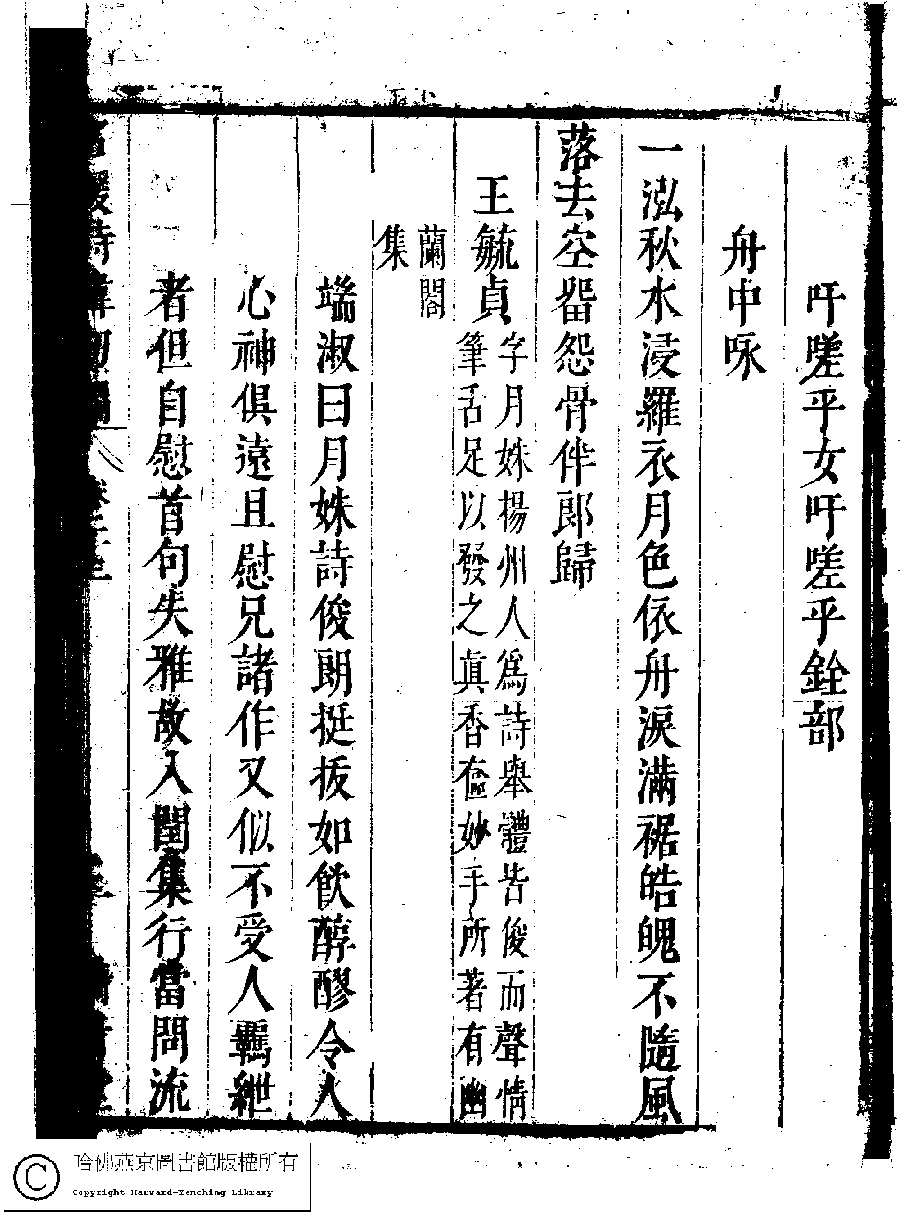 吁嗟乎女吁嗟乎銓部
舟中咏
一泓秋水浸羅衣月色依舟淚滿裾皓魄不隨風
落去空畱怨骨伴郎歸
王毓貞
字月姝揚州人爲詩舉體皆俊而聲情
筆舌足以發之眞香奩妙手所著有幽
蘭閣
集
端淑曰月姝詩俊朗挺拔如飲醇醪令人
心神俱遠且慰兄諸作又似不受人羈紲
者但自慰首句失雅故入閏集行當問流
名媛詩緯初編
哈佛燕京圖書館版權所有
Copyright Harvard-Yenching Library